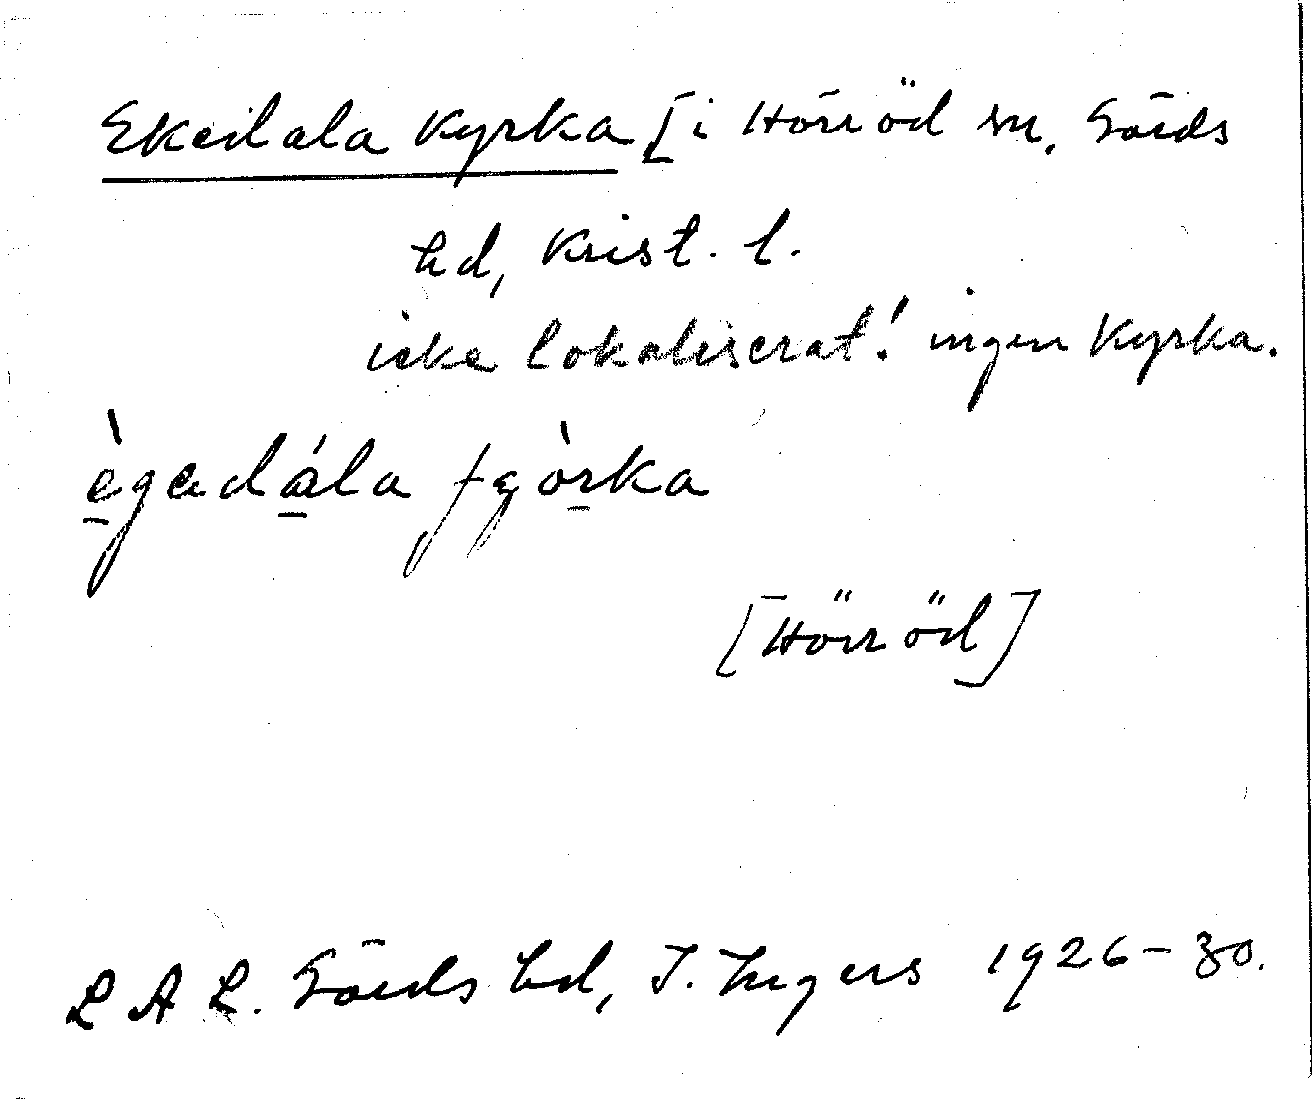 Ekedala Kyrka [i Hörröd sn. Gärds
hd, Krist. l.
icke lokaliserat! ingen Kyrka.
ègadála ʃɕòrka
[Hörröd]
L A L. Gärds hd, I. Ingers 1926-30.